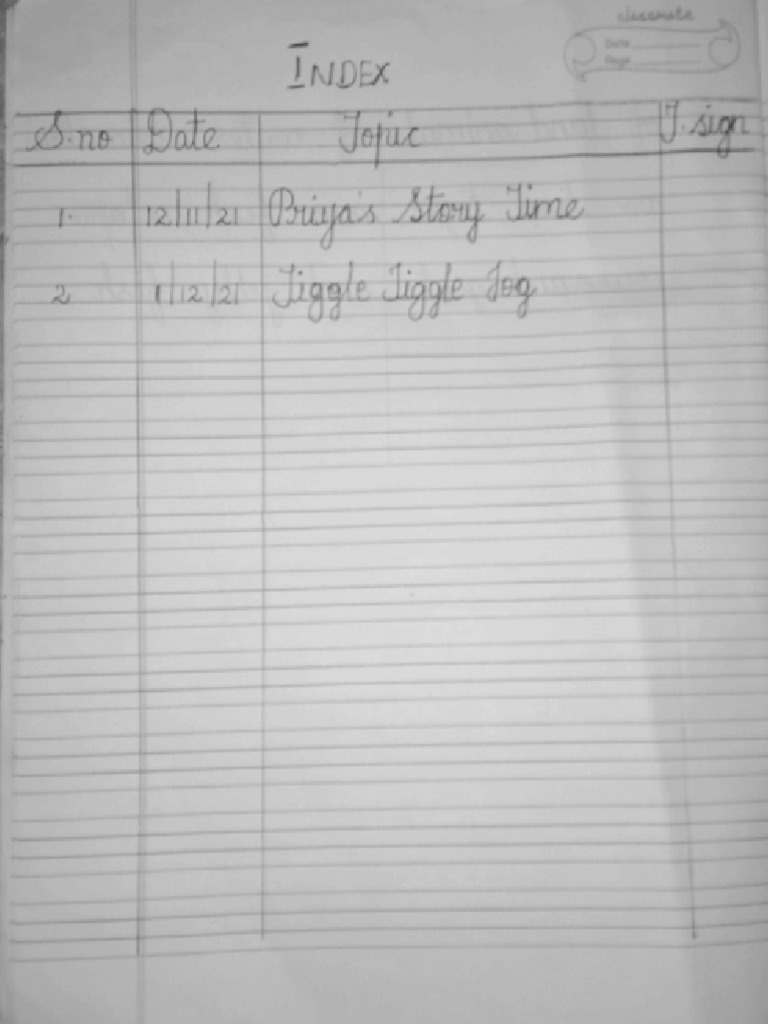 classmate
Date
Page
INDEX
S.no Date Topic T.sign
1. 12/11/21 Priya's Story Time
2 1/12/21 Jiggle Jiggle Jog